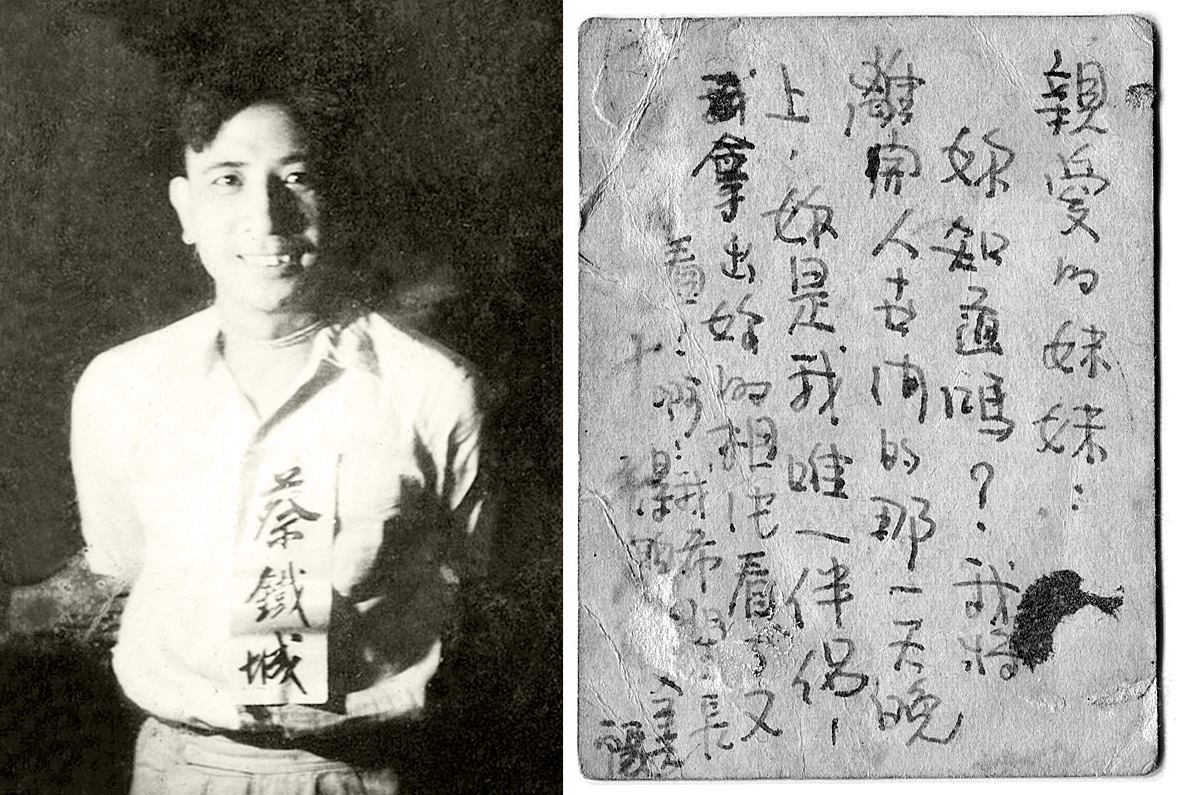 蔡鐵城
親愛的妹妹:
妳知道嗎?我將
離開人世間的那一天晚
上,妳是我唯一伴侶,
我拿出妳的相片看了又
看:啊:我希望